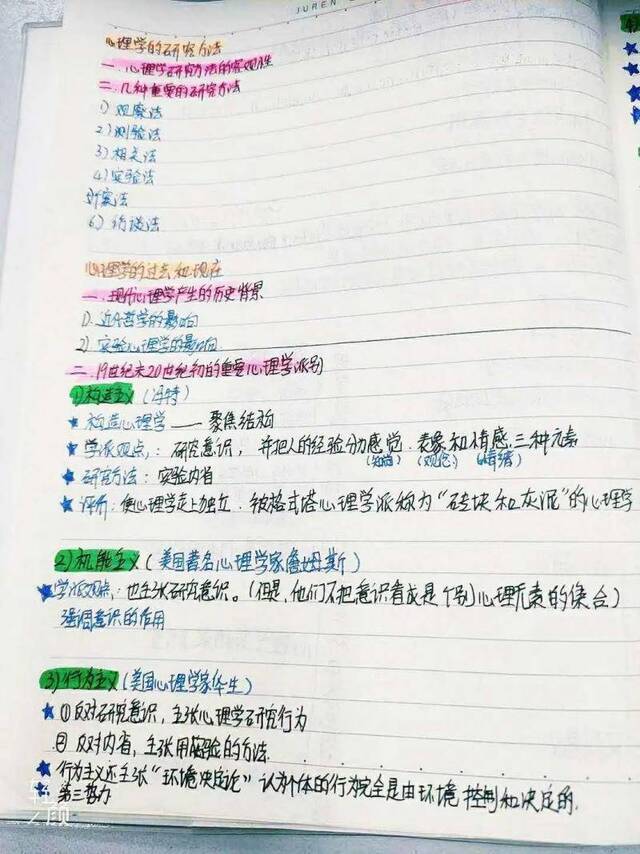 JUREN
心理学的研究方法
一、心理学研究方法的客观性
二、几种重要的研究方法
1) 观察法
2) 测验法
3) 相关法
4) 实验法
5) 个案法
6) 访谈法
心理学的过去和现在
一、现代心理学产生的历史背景
1). 近代哲学的影响
2) 实验心理学的影响
二、19世纪末20世纪初的重要心理学派别
1) 构造主义 (冯特)
★ 构造心理学 —— 聚焦结构
★ 学派观点：研究意识，并把人的经验分为感觉、表象和情感三种元素
(知觉) (观念) (情绪)
★ 研究方法：实验内省
★ 评价：使心理学走上独立，被格式塔心理学派称为“砖块和灰泥”的心理学
2) 机能主义 (美国著名心理学家詹姆斯)
★ 学派观点：也主张研究意识。(但是，他们不把意识看成是个别心理元素的集合)
强调意识的作用
3) 行为主义 (美国心理学家华生)
★ ① 反对研究意识，主张心理学研究行为
② 反对内省，主张用实验的方法
★ 行为主义还主张“环境决定论” 认为个体的行为完全是由环境控制和决定的.
★ 第一势力
轻颜